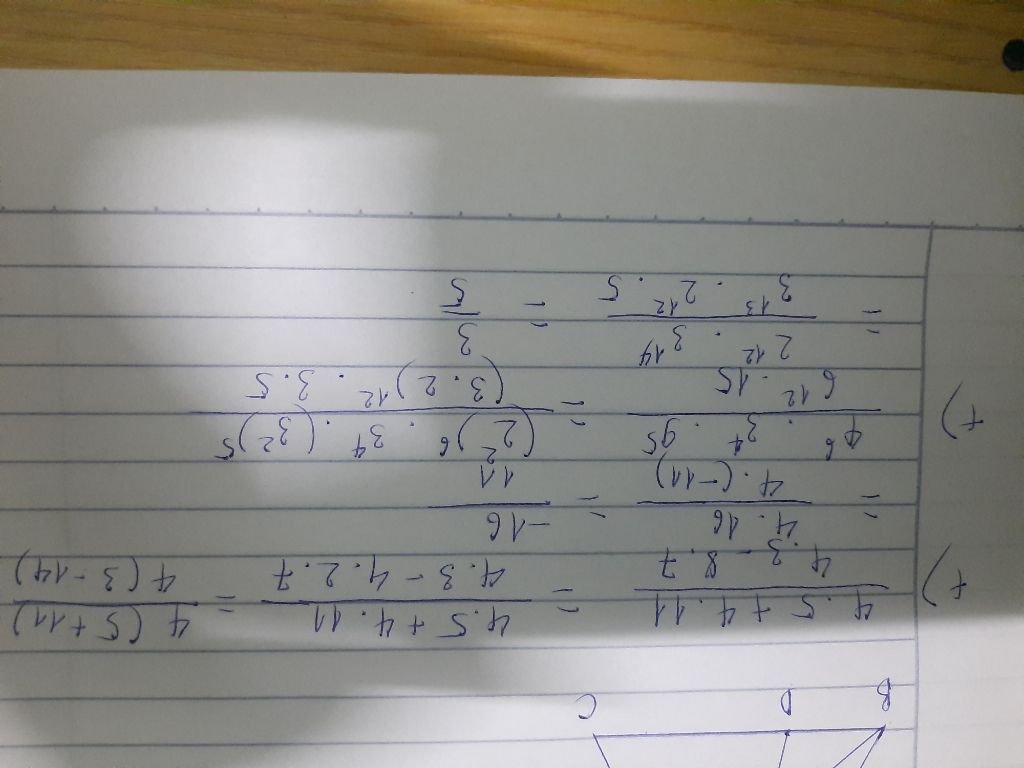 B D C
+) \frac{4.5 + 4.11}{4.3 - 8.7} = \frac{4.5 + 4.11}{4.3 - 4.2.7} = \frac{4(5+11)}{4(3-14)}
= \frac{4.16}{4.(-11)} = \frac{-16}{11}
+) \frac{4^6 . 3^4 . 9^5}{6^{12} . 15} = \frac{(2^2)^6 . 3^4 . (3^2)^5}{(3.2)^{12} . 3.5}
= \frac{2^{12} . 3^{14}}{3^{13} . 2^{12} . 5} = \frac{3}{5}